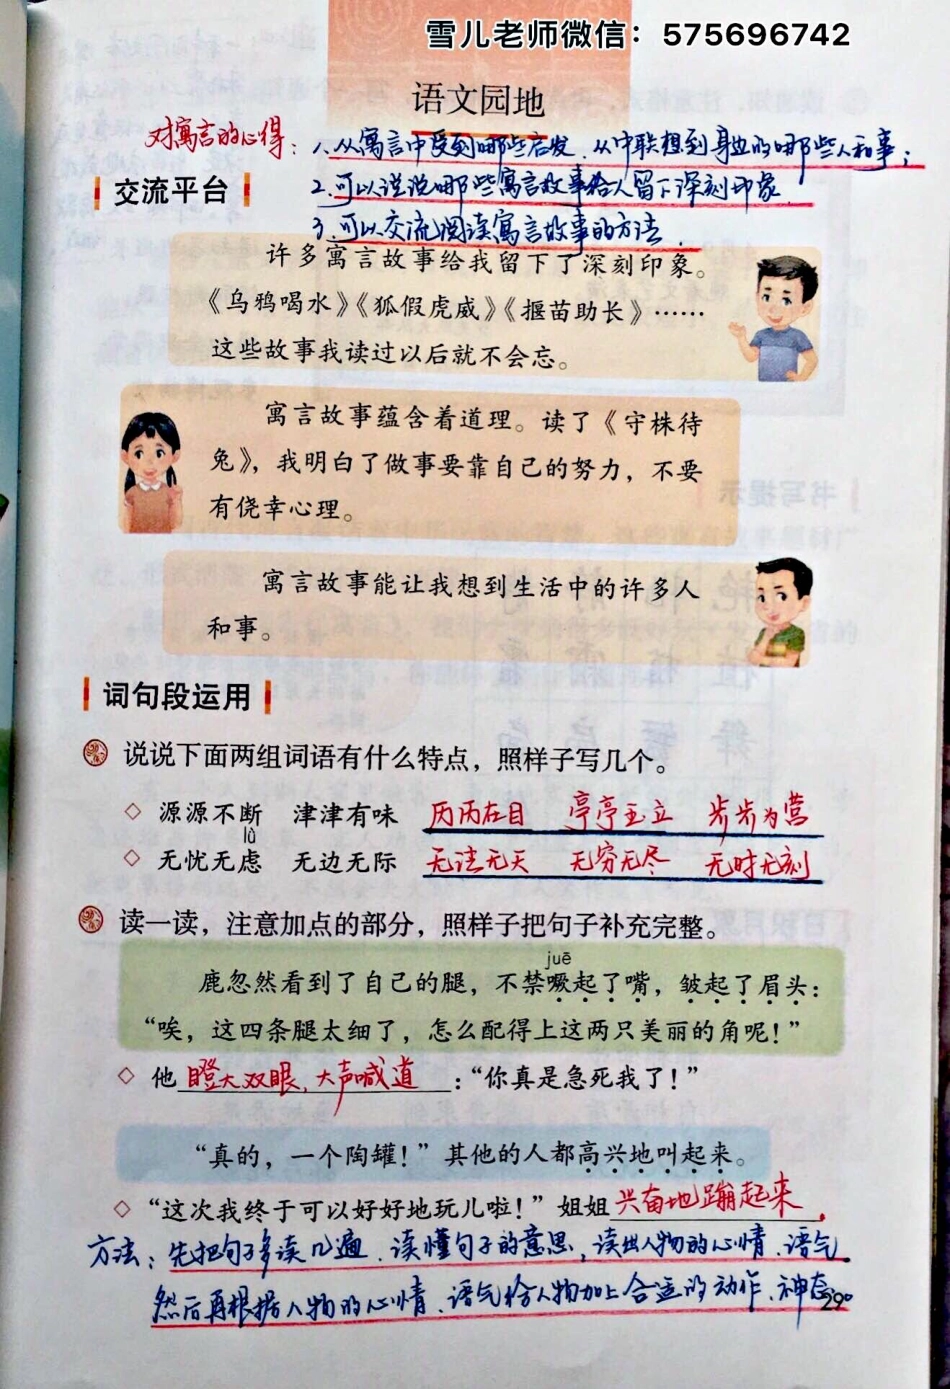 雪儿老师微信：575696742
语文园地
对寓言的心得：1、从寓言中受到哪些启发、从中联想到身边的哪些人和事；
交流平台
2、可以说说哪些寓言故事给人留下深刻印象
3、可以交流阅读寓言故事的方法、
许多寓言故事给我留下了深刻印象。
《乌鸦喝水》《狐假虎威》《揠苗助长》……
这些故事我读过以后就不会忘。
寓言故事蕴含着道理。读了《守株待
兔》，我明白了做事要靠自己的努力，不要
有侥幸心理。
寓言故事能让我想到生活中的许多人
和事。
词句段运用
说说下面两组词语有什么特点，照样子写几个。
◇ 源源不断 津津有味 历历在目 亭亭玉立 步步为营
lǜ
◇ 无忧无虑 无边无际 无法无天 无穷无尽 无时无刻
读一读，注意加点的部分，照样子把句子补充完整。
juē
鹿忽然看到了自己的腿，不禁噘起了嘴，皱起了眉头：
“唉，这四条腿太细了，怎么配得上这两只美丽的角呢！”
◇ 他瞪大双眼，大声喊道：“你真是急死我了！”
“真的，一个陶罐！”其他的人都高兴地叫起来。
◇ “这次我终于可以好好地玩儿啦！”姐姐兴奋地蹦起来。
方法：先把句子多读几遍、读懂句子的意思，读出人物的心情、语气
然后再根据人物的心情、语气给人物加上合适的动作、神态。
29